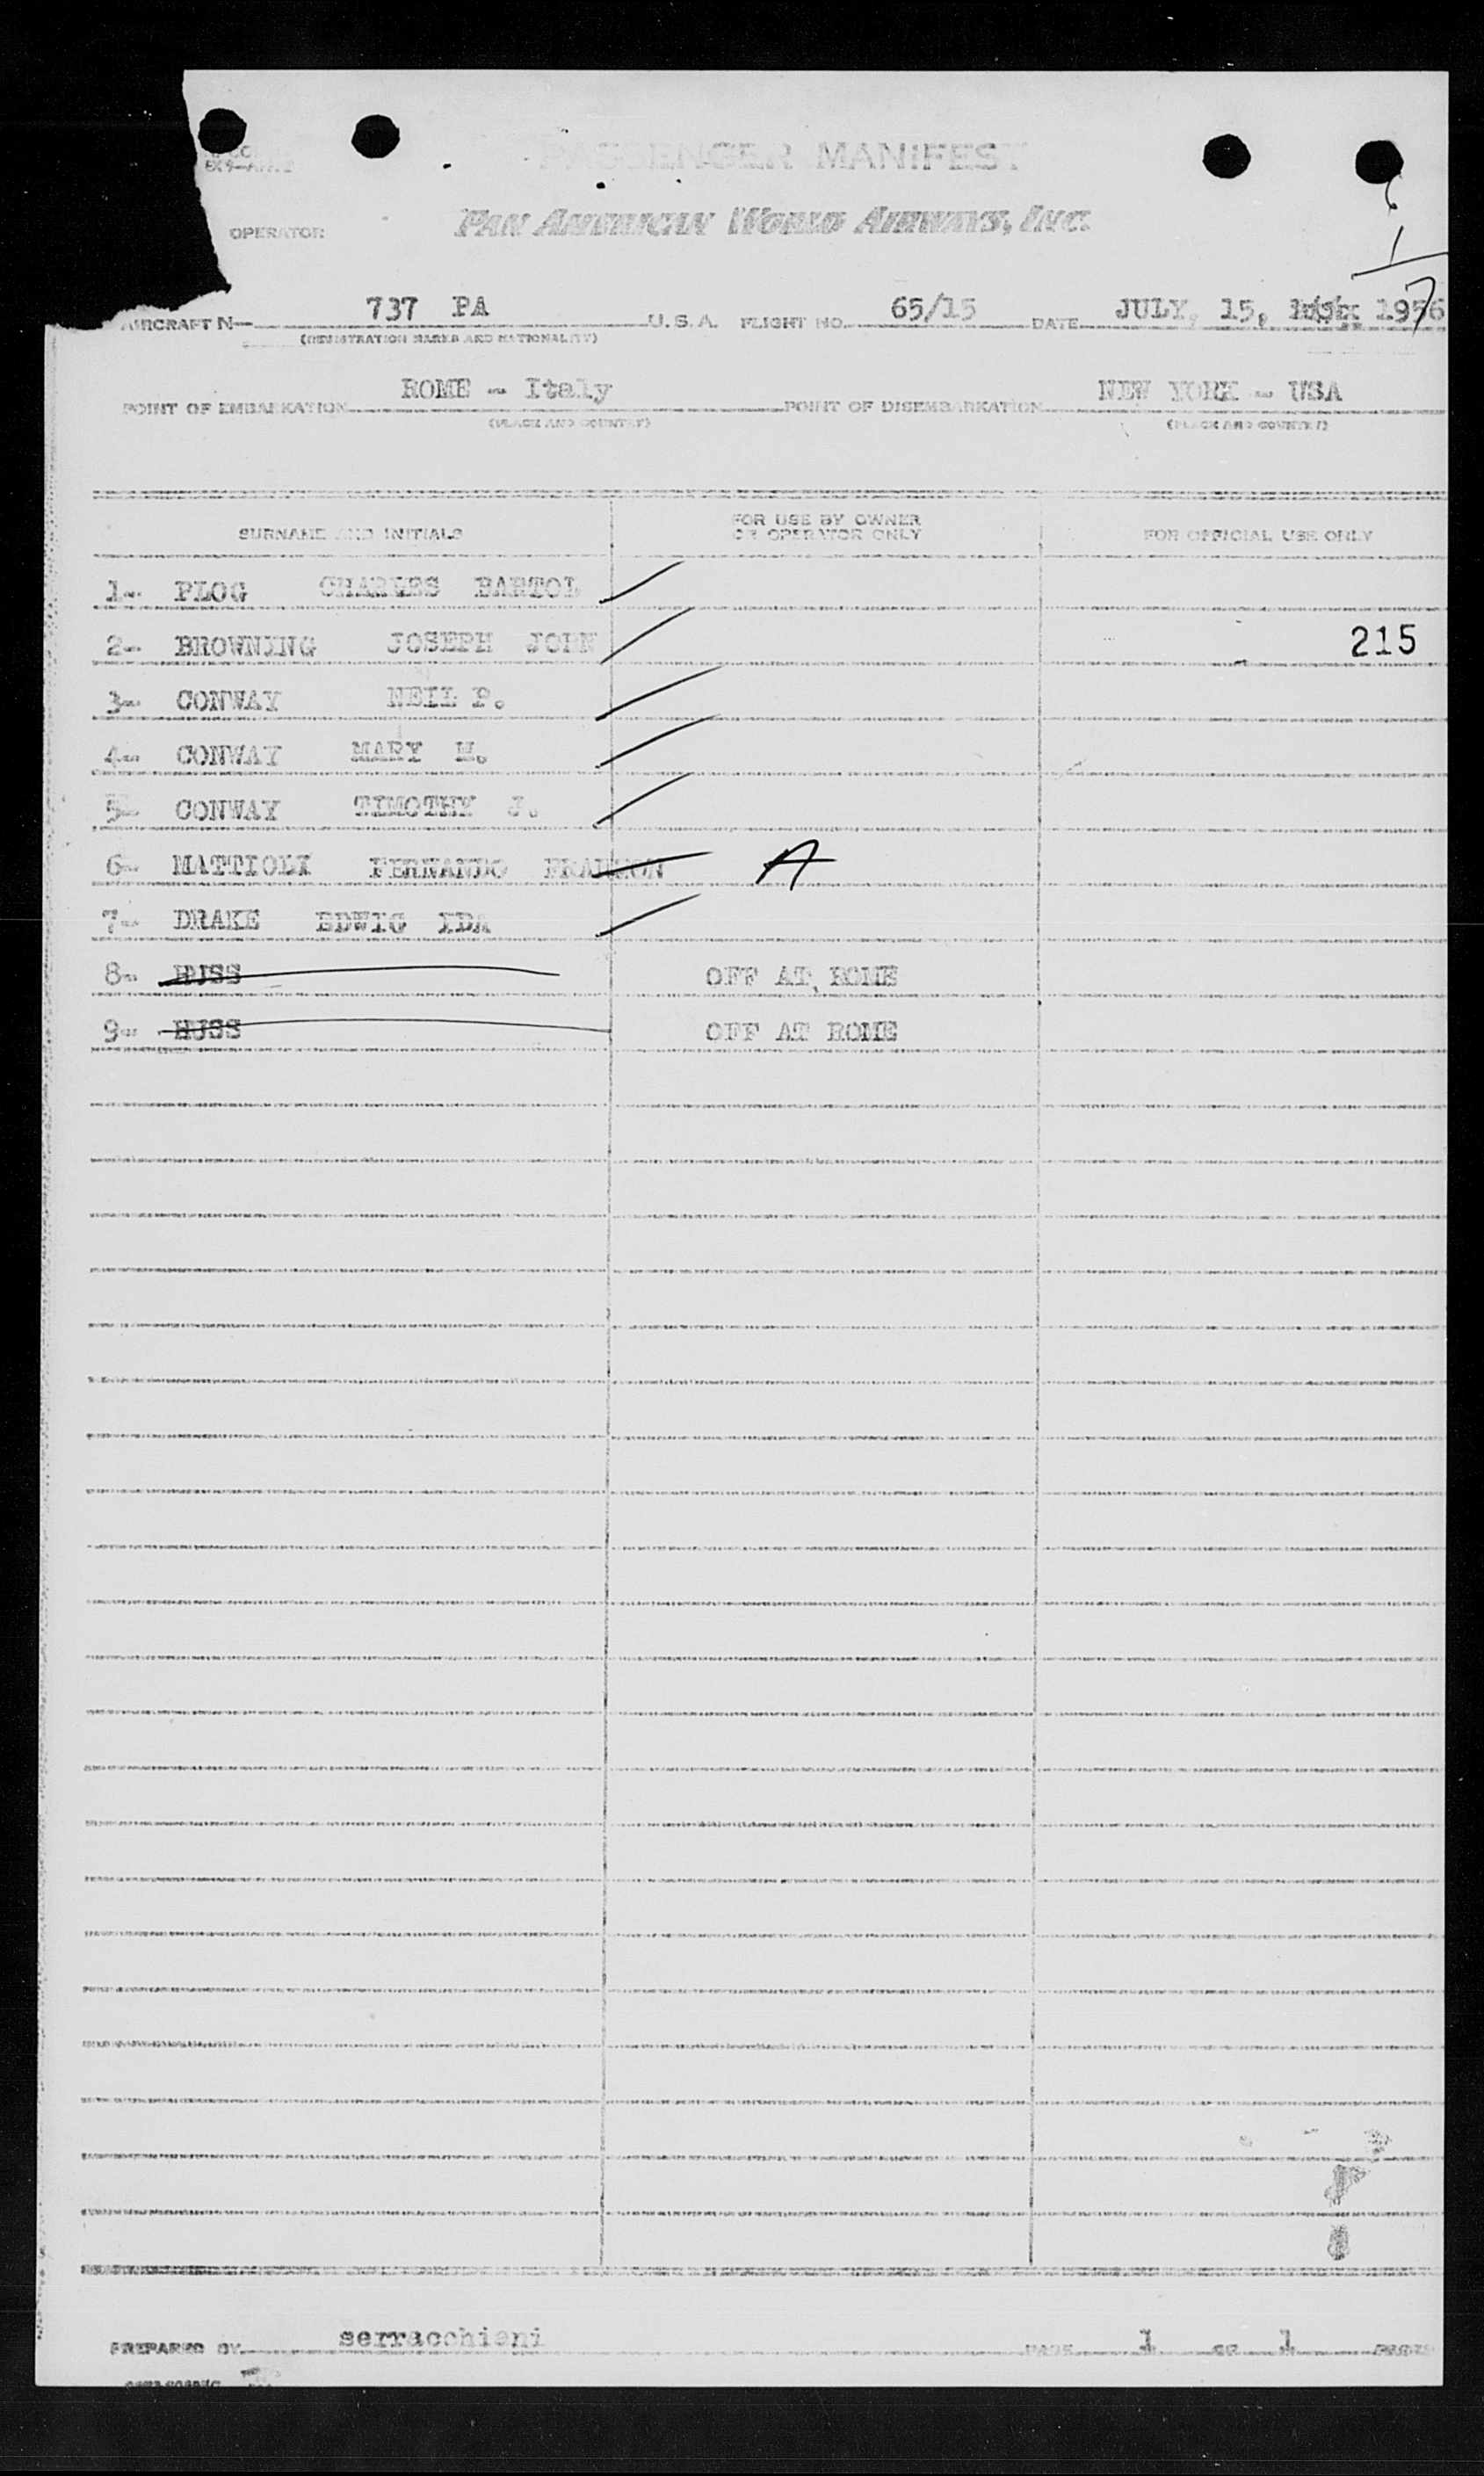 PASSENGER MANIFEST
OPERATOR PAN AMERICAN WORLD AIRWAYS, INC.
AIRCRAFT N— 737 PA U.S.A. FLIGHT NO. 65/15 DATE JULY, 15, 1956
(REGISTRATION MARKS AND NATIONALITY)
POINT OF EMBARKATION ROME - Italy POINT OF DISEMBARKATION NEW YORK - USA
(PLACE AND COUNTRY) (PLACE AND COUNTRY)
SURNAME AND INITIALS FOR USE BY OWNER OR OPERATOR ONLY FOR OFFICIAL USE ONLY
1- PLOG CHARLES BARTOL
2- BROWNING JOSEPH JOHN 215
3- CONWAY NEIL P.
4- CONWAY MARY M.
5- CONWAY TIMOTHY J.
6- MATTIOLI FERNANDO A
7- DRAKE EDWIG IDA
8- HUSS OFF AT ROME
9- HUSS OFF AT ROME
PREPARED BY serracchiani PAGE 1 OF 1 PAGES